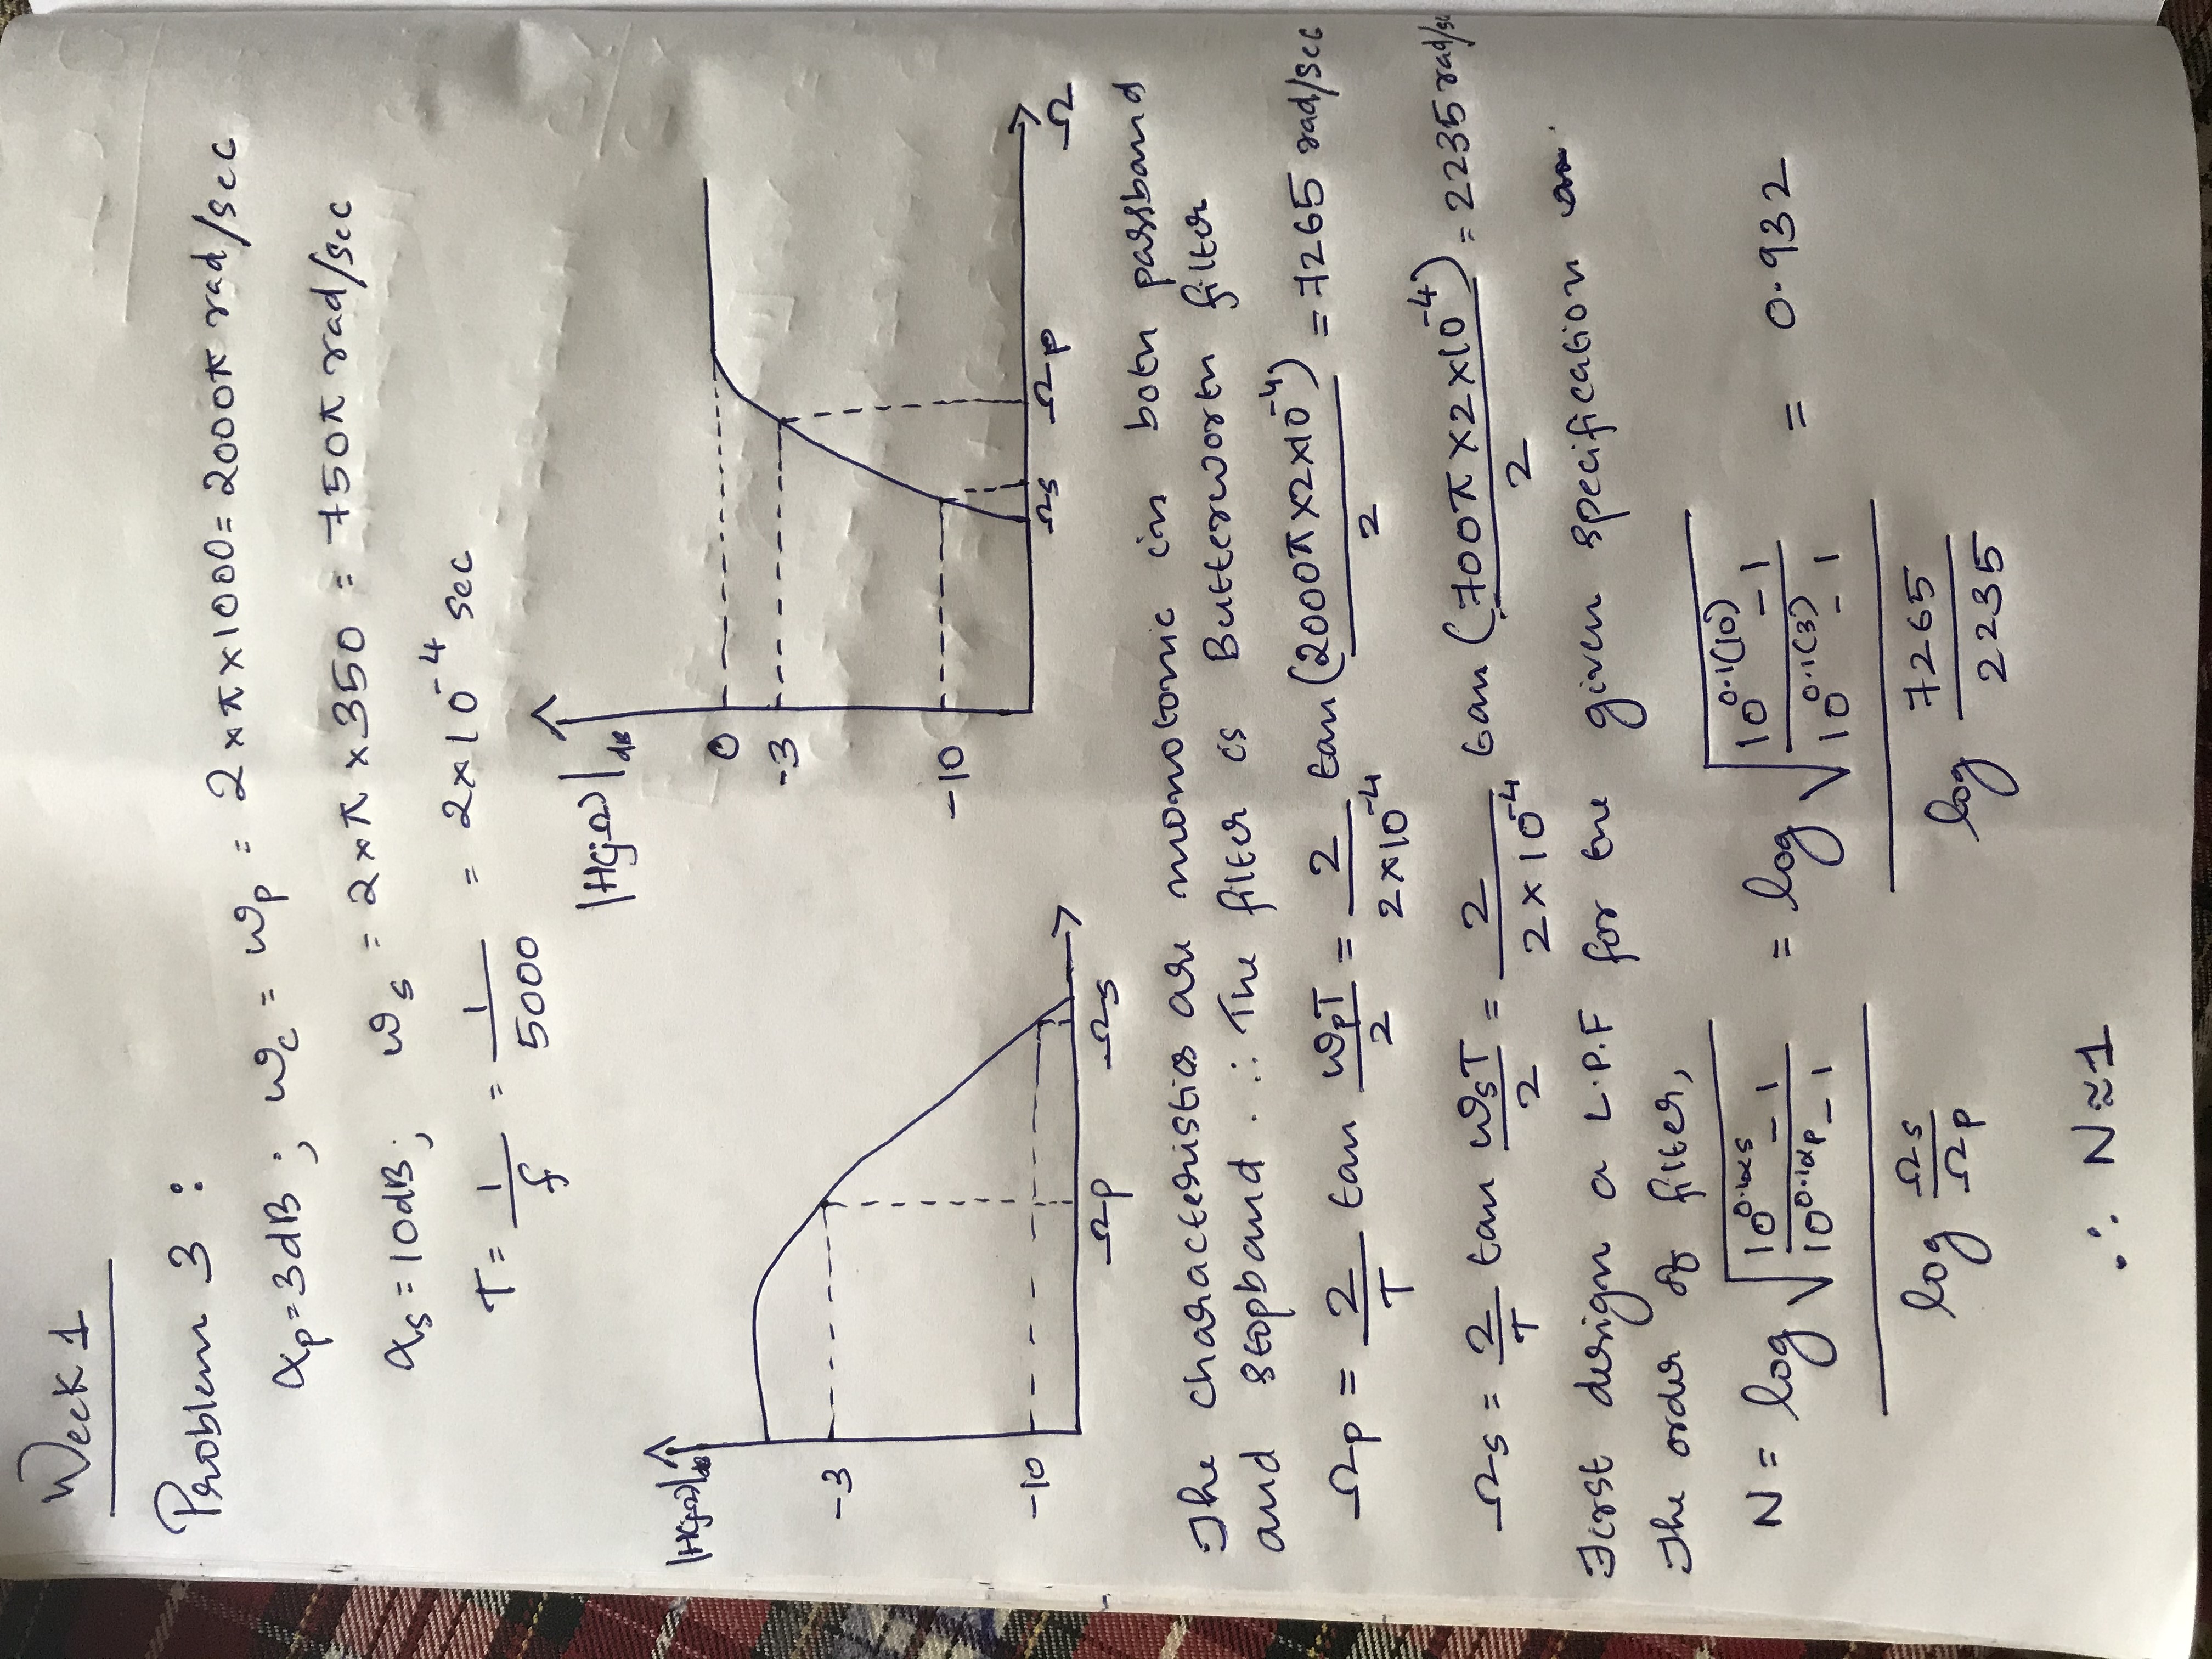 Week 1
Problem 3 :
αp = 3dB ; ωc = ωp = 2×π×1000 = 2000π rad/sec
αs = 10dB ; ωs = 2×π×350 = 750π rad/sec
T = 1/f = 1/5000 = 2×10^-4 sec
|H(jΩ)|dB
0
-3
-10
Ωs Ωp Ω
|H(jΩ)|dB
-3
-10
Ωp Ωs
The characteristics are monotonic in both passband
and stopband . ∴ The filter is Butterworth filter
Ωp = 2/T tan ωpT/2 = 2/(2×10^-4) tan (2000π×2×10^-4)/2 = 7265 rad/sec
Ωs = 2/T tan ωsT/2 = 2/(2×10^-4) tan (700π×2×10^-4)/2 = 2235 rad/se
First design a L.P.F for the given specification
The order of filter,
N = log √((10^0.1αs - 1)/(10^0.1αp - 1)) / log (Ωs/Ωp) = log √((10^0.1(10) - 1)/(10^0.1(3) - 1)) / log (7265/2235) = 0.932
∴ N ≈ 1